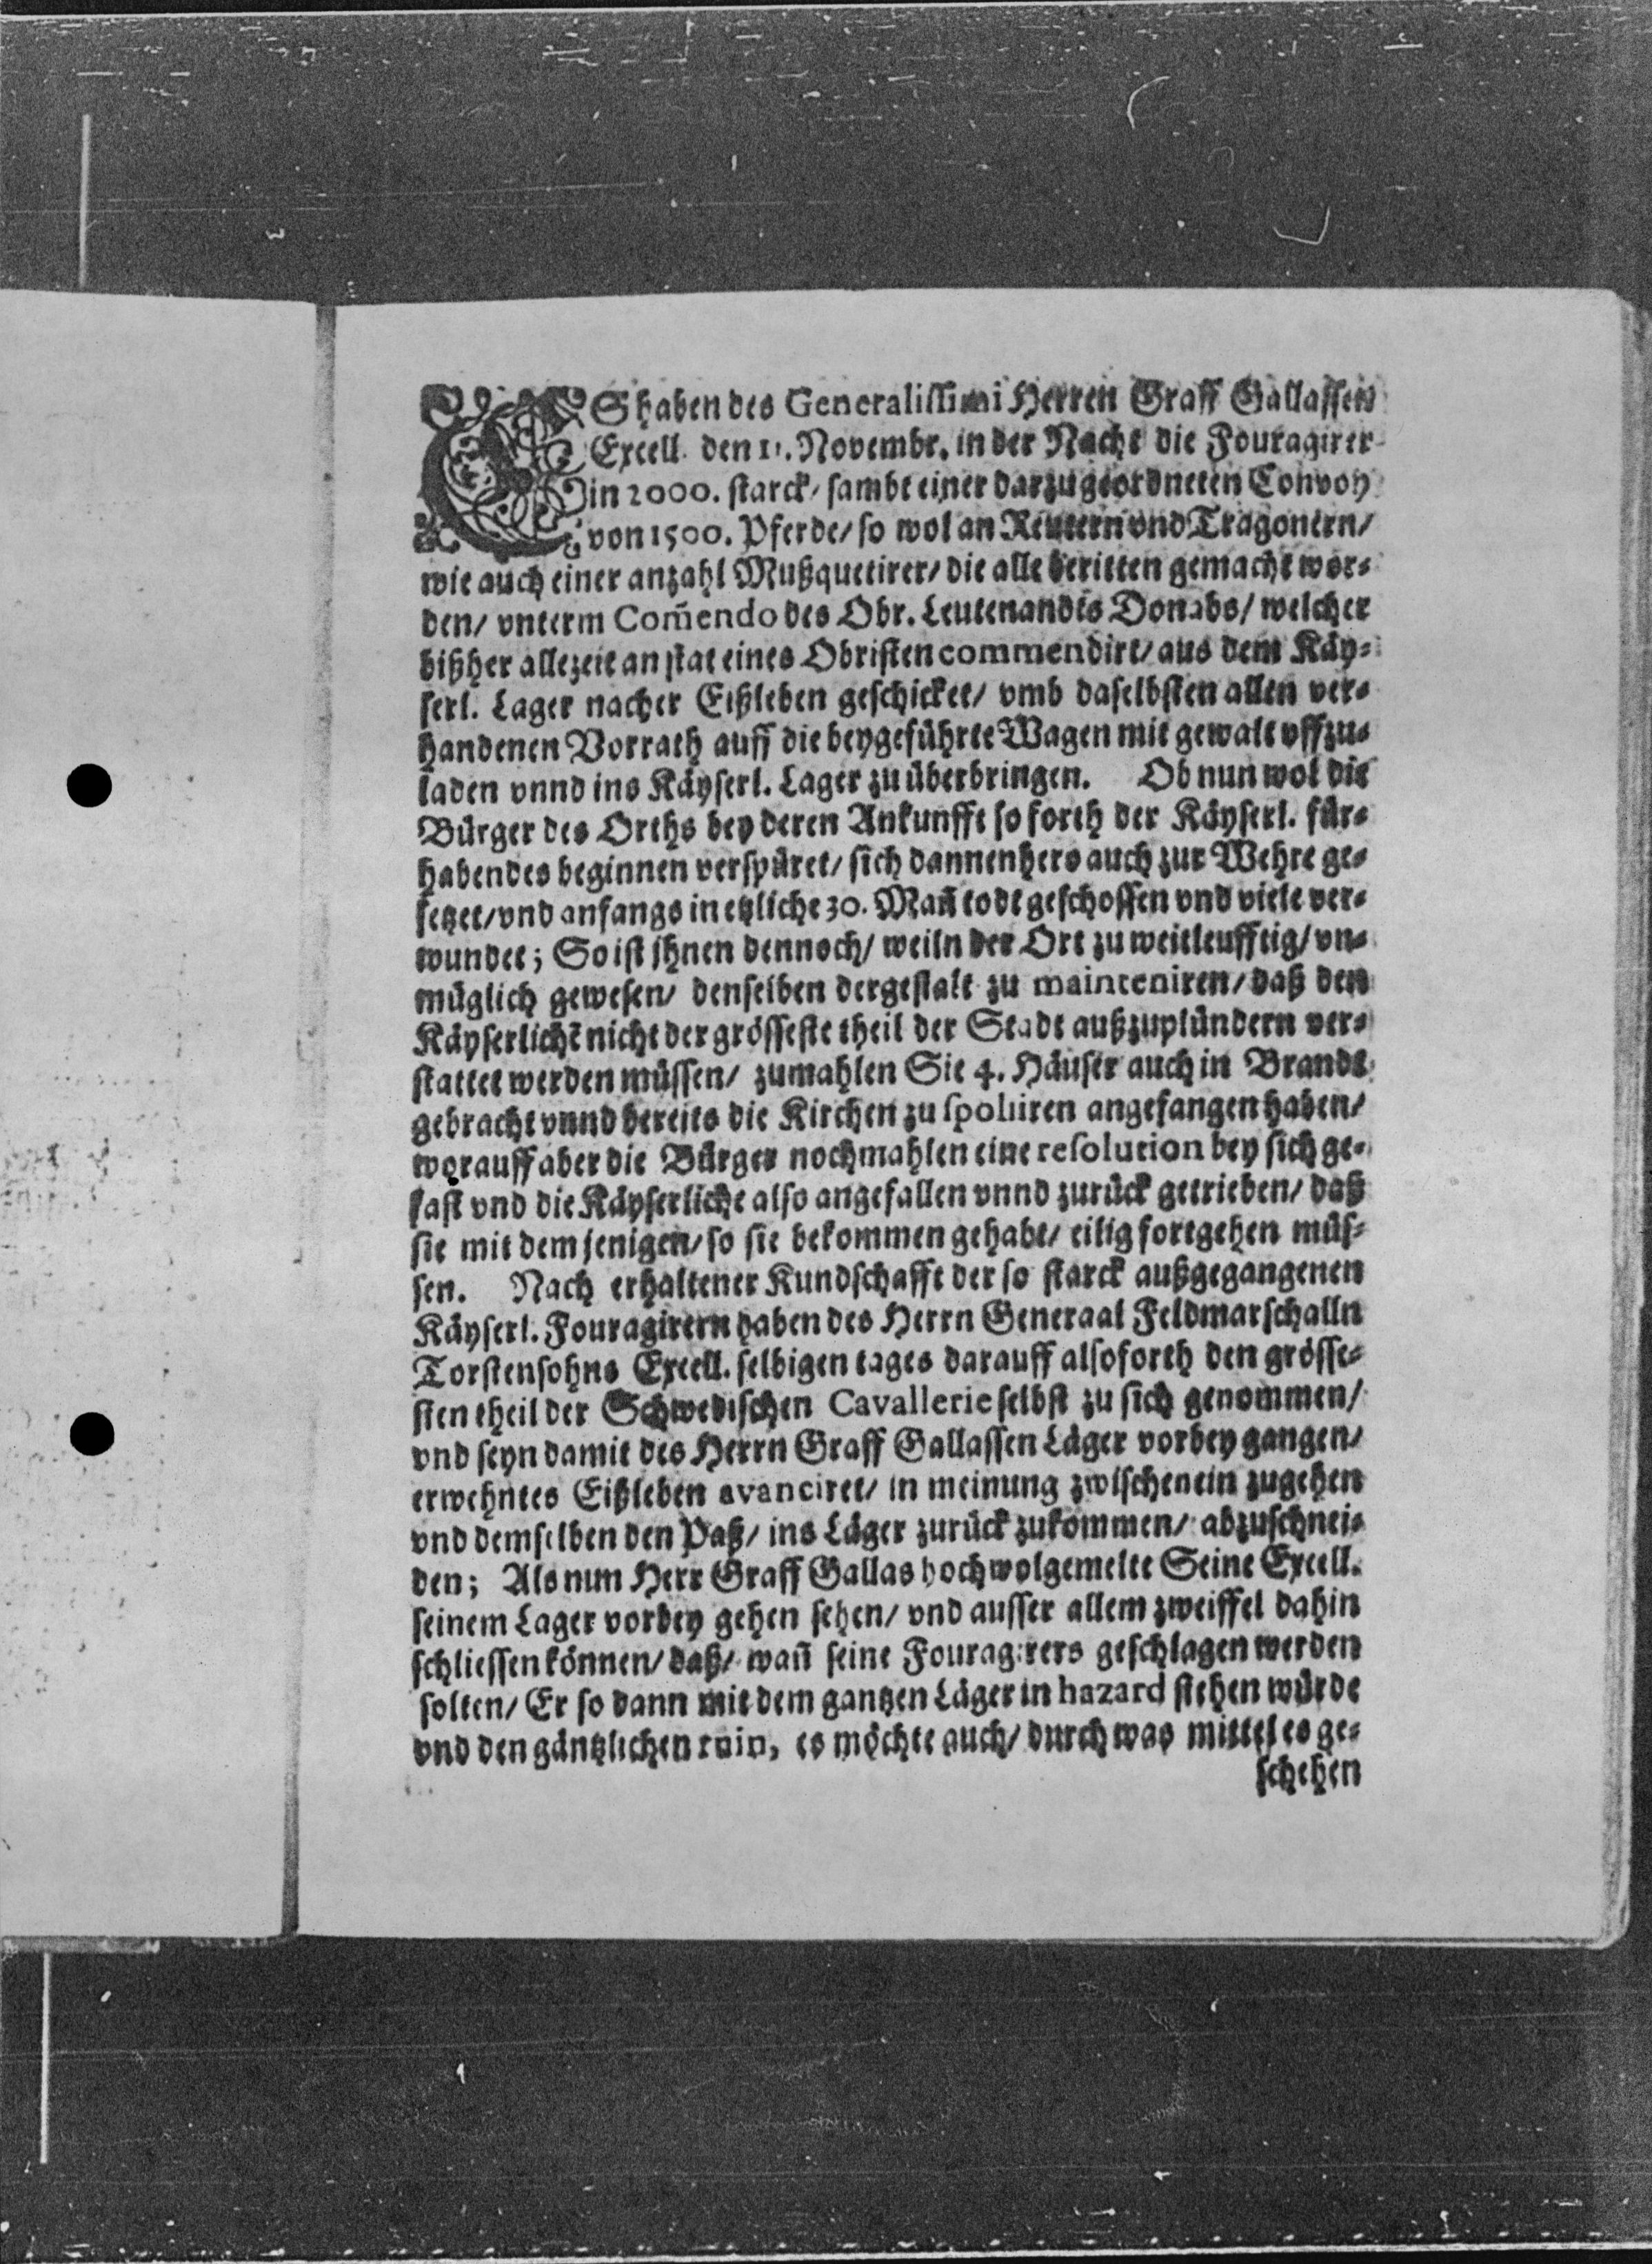 ES haben des Generalissimi Herren Graff Gallassen
Excell. den 11. Novembr. in der Nacht die Fouragirer
in 2000. starck/ sambt einer darzugeordneten Convoy
von 1500. Pferde/ so wol an Reutern vnd Tragonern/
wie auch einer anzahl Mußquetirer/ die alle beritten gemacht wor-
den/ vnterm Com̃endo des Obr. Leutenandts Donabs/ welcher
bißher allezeit an stat eines Obristen commendirt/ aus dem Käy-
serl. Lager nacher Eißleben geschicket/ vmb daselbsten allen ver-
handenen Vorrath auff die beygeführte Wagen mit gewalt vffzu-
laden vnnd ins Käyserl. Lager zu überbringen. Ob nun wol die
Bürger des Orths bey deren Ankunfft so forth der Käyserl. für-
habendes beginnen verspüret/ sich dannenhero auch zur Wehre ge-
setzet/ vnd anfangs in etzliche 30. Mañ todt geschossen vnd viele ver-
wundet; So ist ihnen dennoch/ weiln der Ort zu weitleufftig/ vn-
müglich gewesen/ denselben dergestalt zu mainteniren/ daß den
Käyserlichẽ nicht der grösseste theil der Stadt außzuplündern ver-
stattet werden müssen/ zumahlen Sie 4. Häuser auch in Brandt
gebracht vnnd bereits die Kirchen zu spoliiren angefangen haben/
worauff aber die Bürger nochmahlen eine resolution bey sich ge-
fast vnd die Käyserliche also angefallen vnnd zurück getrieben/ daß
sie mit dem jenigen/ so sie bekommen gehabt/ eilig fortgehen müs-
sen. Nach erhaltener Kundschafft der so starck außgegangenen
Käyserl. Fouragirern haben des Herrn Generaal Feldmarschalln
Torstensohns Excell. selbigen tages darauff alsoforth den grösse-
sten theil der Schwedischen Cavallerie selbst zu sich genommen/
vnd seyn damit des Herrn Graff Gallassen Läger vorbey gangen/
erwehntes Eißleben avanciret/ in meinung zwischenein zugehen
vnd demselben den Paß/ ins Läger zurück zukommen/ abzuschnei-
den; Als nun Herr Graff Gallas hochwolgemelte Seine Excell.
seinem Lager vorbey gehen sehen/ vnd ausser allem zweiffel dahin
schliessen können/ daß/ wañ seine Fouragirers geschlagen werden
solten/ Er so dann mit dem gantzen Läger in hazard stehen würde
vnd den gäntzlichen ruin, es möchte auch/ durch was mittel es ge-
schehen